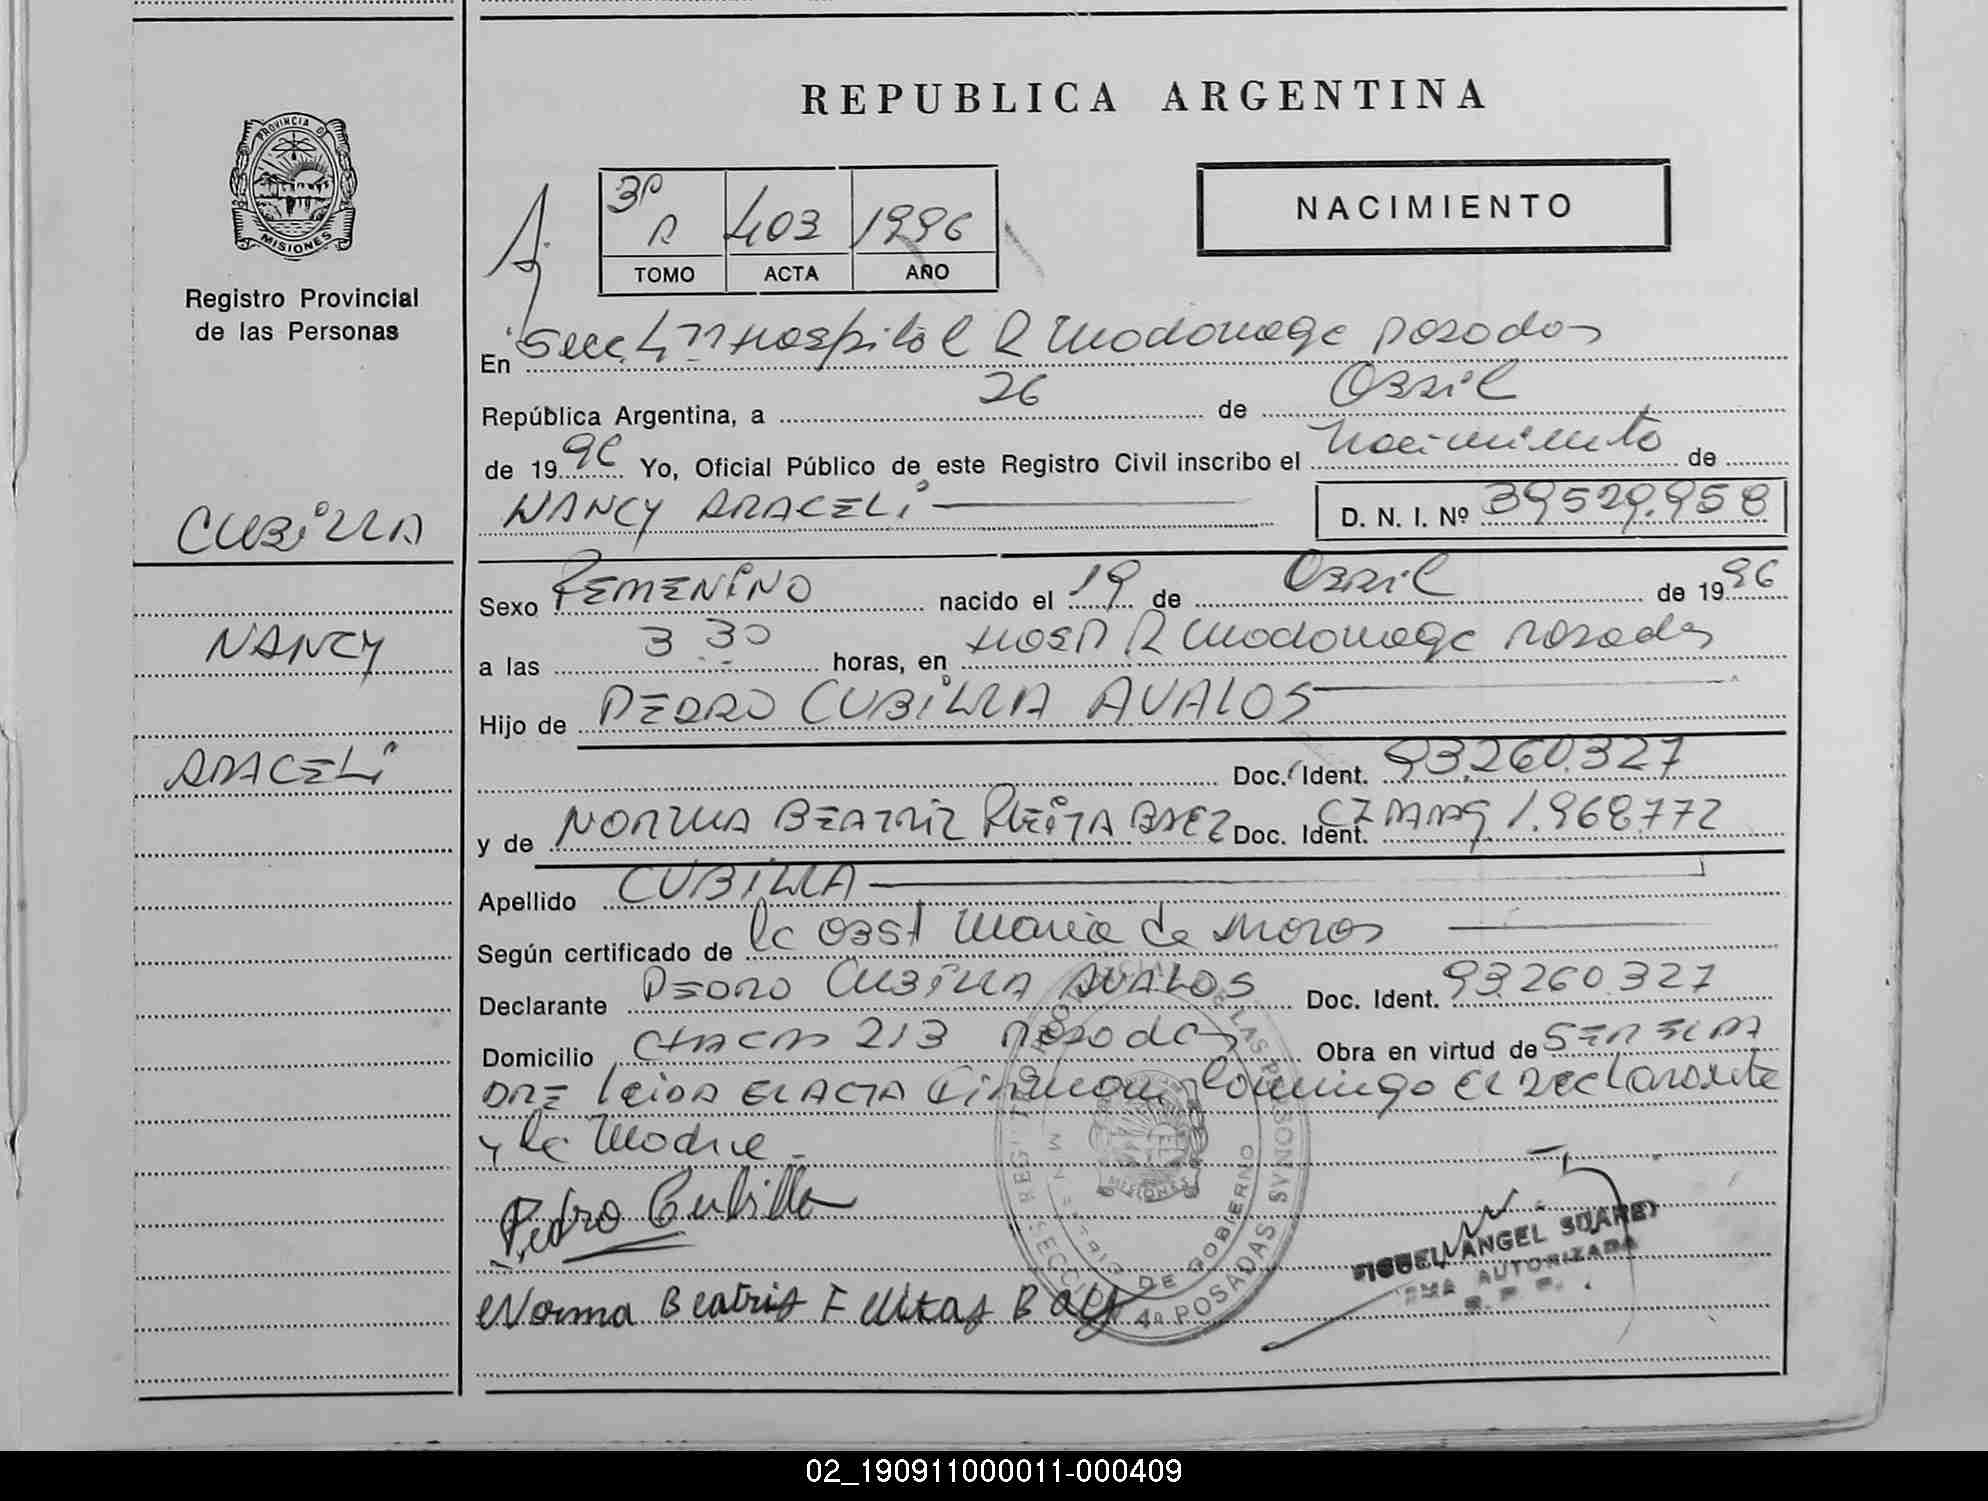 REPUBLICA ARGENTINA
PROVINCIA D
MISIONES
Registro Provincial
de las Personas
3º A 403 1996
TOMO ACTA AÑO
NACIMIENTO
En Secc 4ª Hospital R Madariaga Posadas
República Argentina, a 26 de Abril
de 1996 Yo, Oficial Público de este Registro Civil inscribo el Nacimiento de
NANCY ARACELi D. N. I. Nº 39529.958
CUBiLLA
Sexo FEMENiNO nacido el 19 de Abril de 1996
NANCY
a las 3 30 horas, en HOSP R Madariaga Posadas
Hijo de PEDRO CUBiLLA AVALOS
ARACELi
Doc. Ident. 93.260.327
y de NORMA BEATRiZ BAEZ Doc. Ident. 1.968.772
Apellido CUBiLLA
Según certificado de la Obst Maria de
Declarante PEDRO CUBiLLA AVALOS Doc. Ident. 93.260.327
Domicilio CHACRA 213 Posadas Obra en virtud de SER EL PA
DRE leiDA EL ACTA Firman el Declarante
y la Madre
Pedro Cubilla
Norma Beatris
MIGUEL ANGEL SUAREZ
FIRMA AUTORIZADA
R. P. P.
MISIONES
MINISTERIO DE GOBIERNO
SECCION 4a POSADAS
02_190911000011-000409